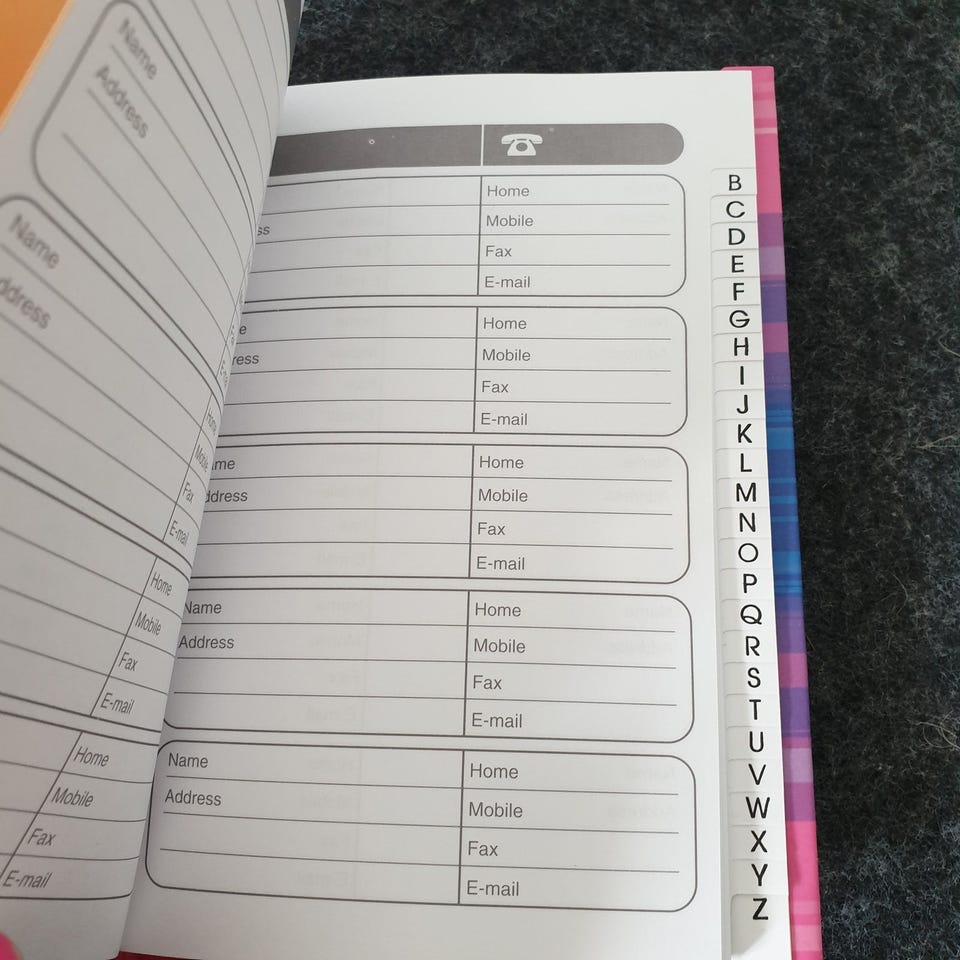 Name
Address
Name
ddress
Home
Mobile
Fax
E-mail
Home
Mobile
Fax
E-mail
Home
Mobile
Fax
E-mail
Home
ss Mobile
Fax
E-mail
e Home
ress Mobile
Fax
E-mail
ame Home
ddress Mobile
Fax
E-mail
Name Home
Address Mobile
Fax
E-mail
Name Home
Address Mobile
Fax
E-mail
B
C
D
E
F
G
H
I
J
K
L
M
N
O
P
Q
R
S
T
U
V
W
X
Y
Z